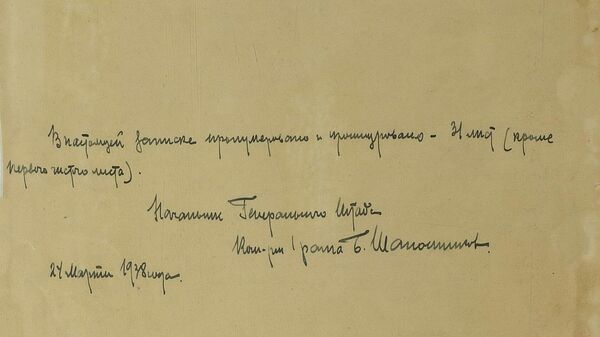 В настоящей записке пронумеровано и прошнуровано – 31 лист (кроме
первого чистого листа).
Начальник Генерального Штаба
Ком-рм 1 ранга Б. Шапошников.
24 Марта 1938 года.